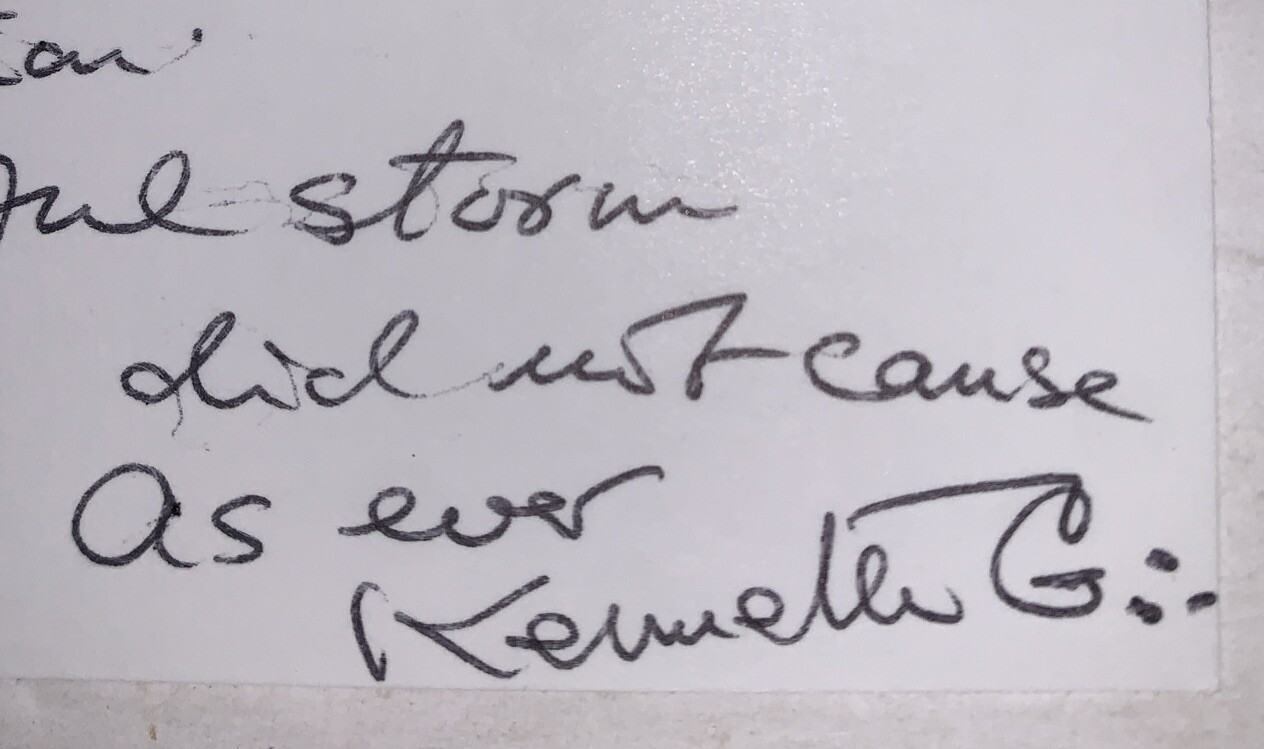 storm
did not cause
As ever
Kenneth G:.